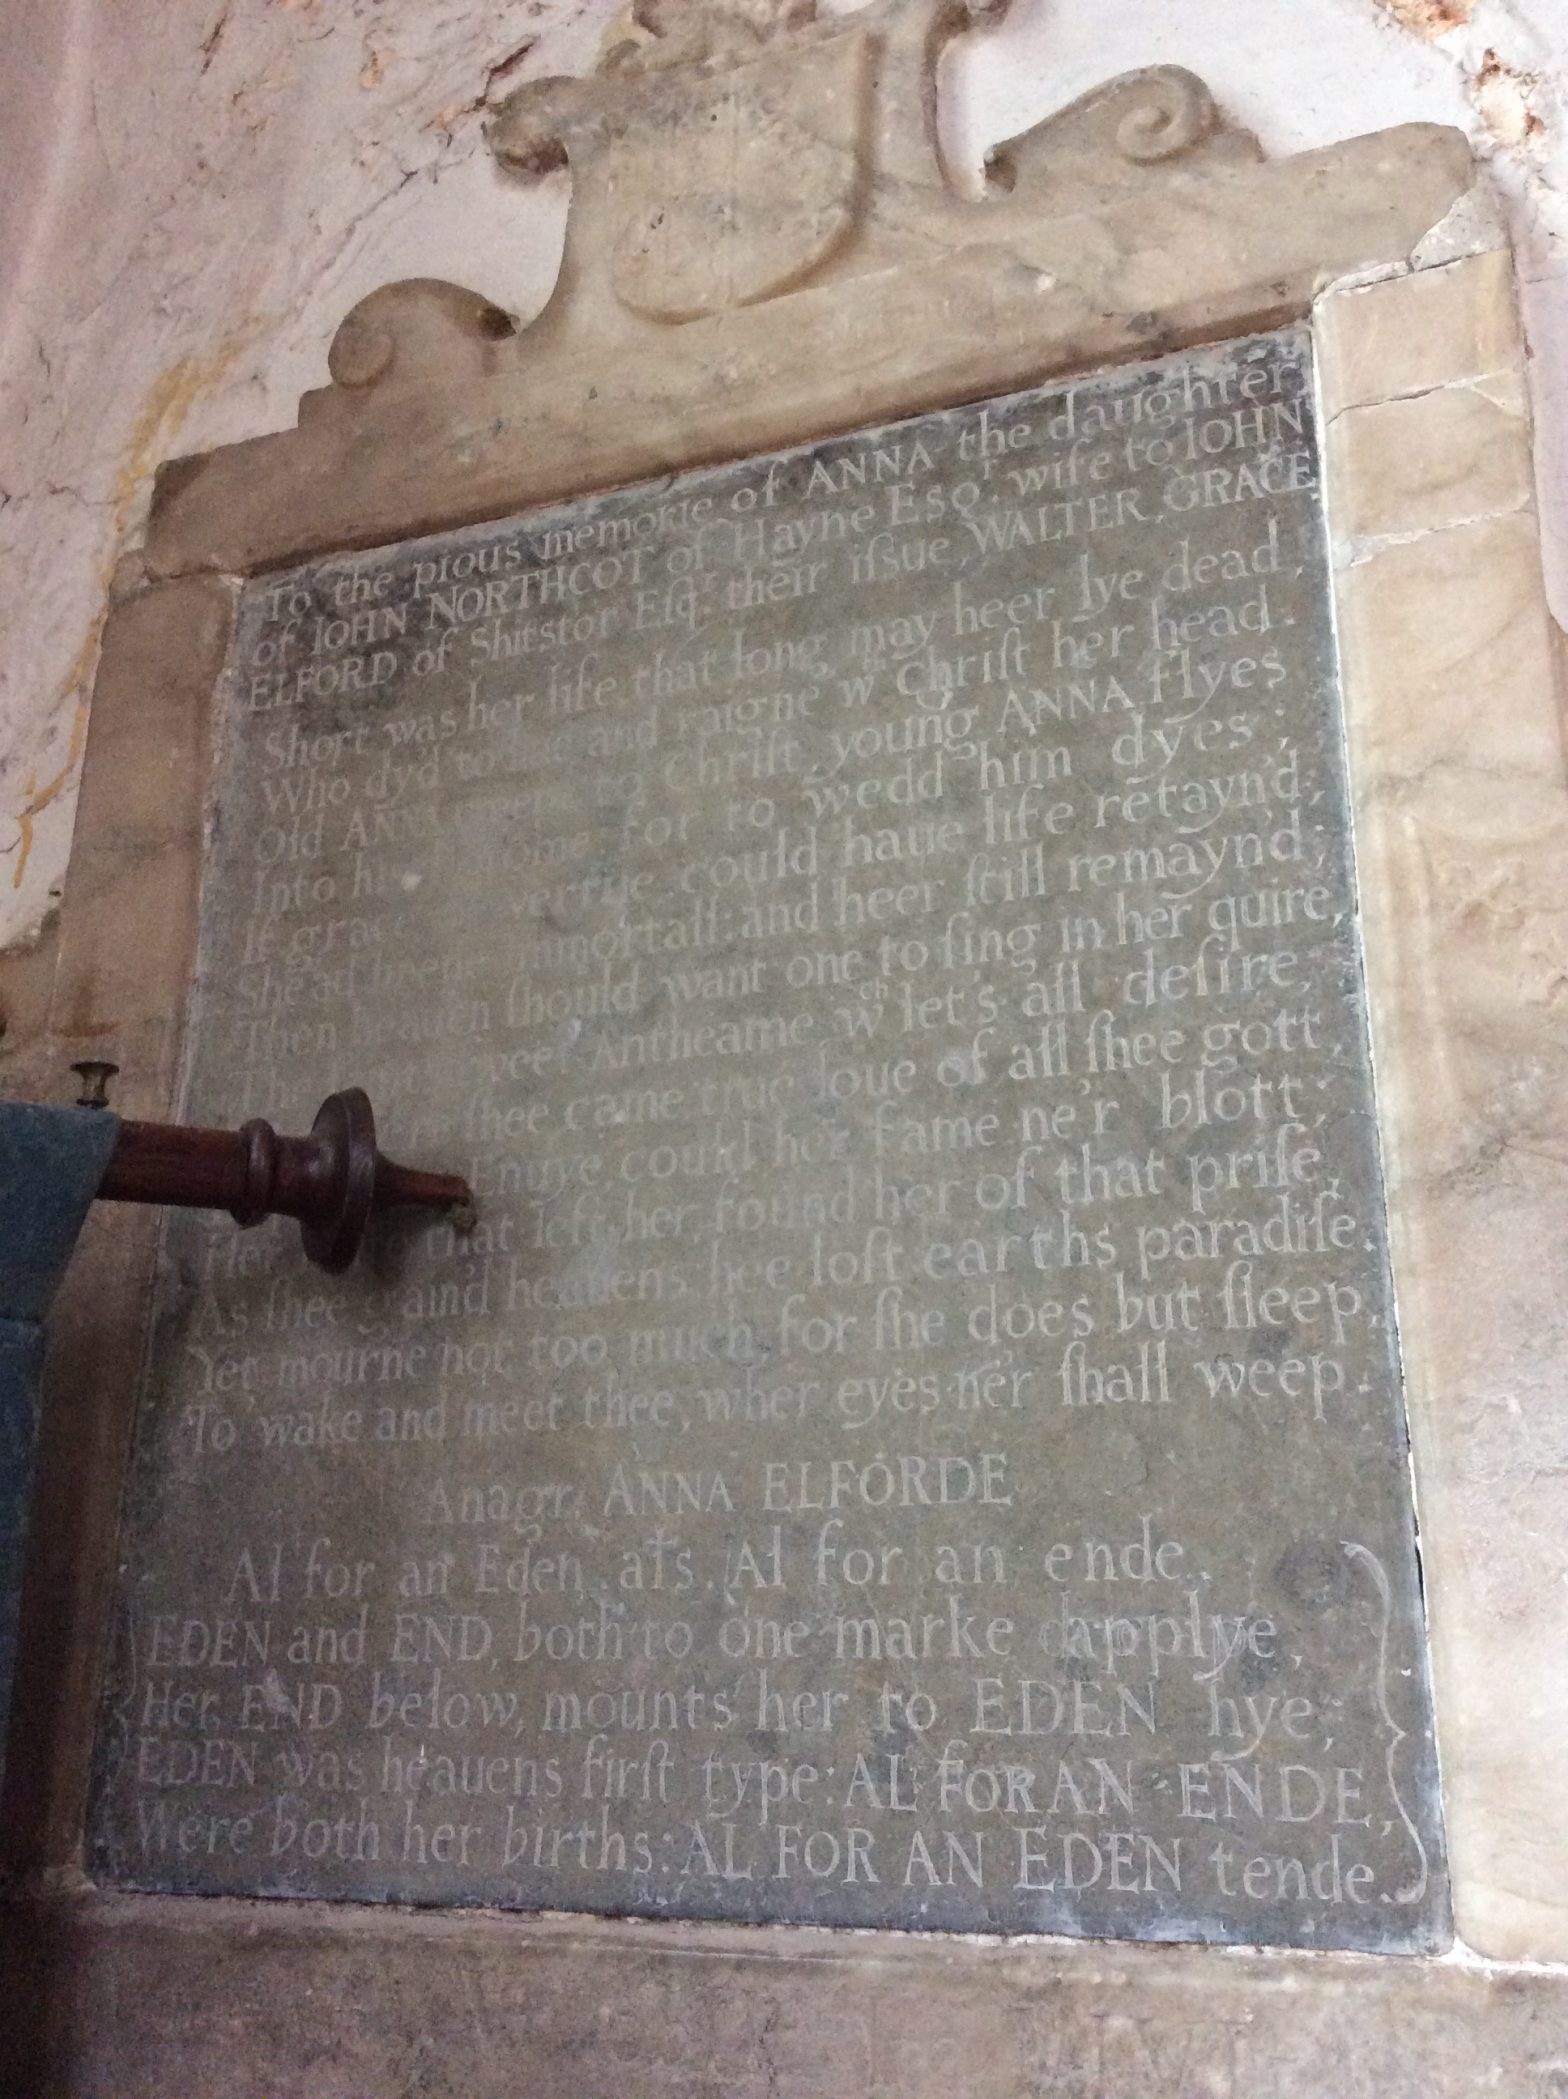 To the pious memorie of ANNA the daughter
of IOHN NORTHCOT of Hayne Esqr. wife to IOHN
ELFORD of Shitstor Esq: their iſsue, WALTER, GRACE.
Short was her life that long may heer lye dead,
Who dyd to and raigne wth Chriſt her head.
Old ANNA to Chriſt, young ANNA flyes
Into for to wedd him dyes;
If grace vertue could haue life retayn'd,
She immortall: and heer ſtill remaynd;
Then heauen ſhould want one to ſing in her quire,
Antheame wch let's all deſire,
ſhee came true loue of all ſhee gott,
Enuye could her fame ne'r blott,
that left her, found her of that priſe,
As ſhee gain'd heauens, hee loſt earths paradiſe.
Yet mourne not too much, for ſhe does but ſleep,
To wake and meet thee, wher eyes ner ſhall weep.
Anagr. ANNA ELFORDE
Al for an Eden. ats. Al for an ende.
EDEN and END, both to one marke applye,
Her END below, mounts her to EDEN hye;
EDEN was heauens firſt type: AL FOR AN ENDE,
Were both her births: AL FOR AN EDEN tende.